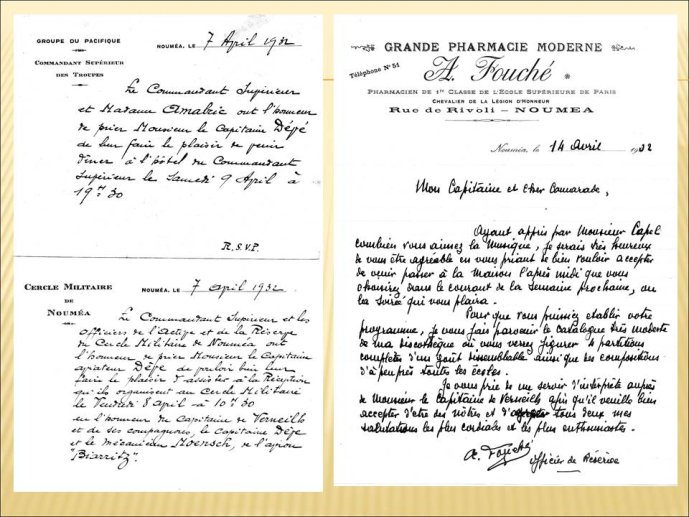 GROUPE DU PACIFIQUE
COMMANDANT SUPÉRIEUR
DES TROUPES
NOUMÉA, LE 7 April 1932
Le Commandant Supérieur
et Madame Amalric ont l'honneur
de prier Monsieur le Capitaine Dépé
de leur faire le plaisir de venir
dîner à l'hôtel du Commandant
Supérieur le Samedi 9 April à
19 h 30
R.S.V.P.
CERCLE MILITAIRE
DE
NOUMÉA
NOUMÉA, LE 7 april 1932
Le Commandant Supérieur et les
officiers de l'Active et de la Réserve
du Cercle Militaire de Nouméa ont
l'honneur de prier Monsieur le Capitaine
aviateur Dépé de vouloir bien leur
faire le plaisir d'assister à la Réception
qu'ils organisent au Cercle Militaire
le Vendredi 8 april à 10 h 30
en l'honneur du Capitaine de Verneilh
et de ses compagnons, le Capitaine Dépé
et le mécanicien Moensch, de l'avion
"Biarritz".
GRANDE PHARMACIE MODERNE
Téléphone N° 51
A. Fouché
PHARMACIEN DE 1re CLASSE DE L'ÉCOLE SUPÉRIEURE DE PARIS
CHEVALIER DE LA LÉGION D'HONNEUR
Rue de Rivoli - NOUMEA
Nouméa, le 14 Avril 1932
Mon Capitaine et Cher Camarade,
Ayant appris par Monsieur Capel
combien vous aimez la Musique, je serais très heureux
de vous être agréable en vous priant de bien vouloir accepter
de venir passer à la maison l'après midi que vous
choisirez dans le courant de la Semaine prochaine, ou
la soirée qui vous plaira.
Pour que vous puissiez etablir votre
programme, je vous fais parvenir le catalogue très modeste
de ma discothèque où vous verrez figurer 4 partitions
complètes d'un goût dissemblable ainsi que des compositions
d'à peu près toutes les écoles.
Je vous prie de me servir d'interprète auprès
de Monsieur le Capitaine de Verneilh afin qu'il veuille bien
accepter d'être des nôtres et d'agréer tous deux mes
salutations les plus cordiales et les plus enthousiastes.
A. Fouché
officier de Réserve